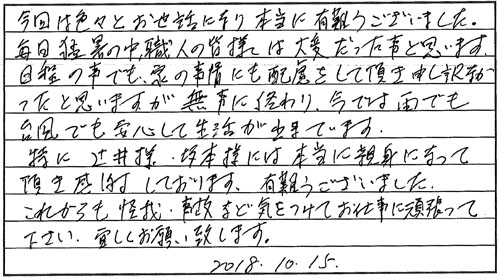 今回は色々とお世話になり本当に有難うございました。
毎日猛暑の中、職人の皆様には大変だった事と思います。
日程の事でも、家の事情にも配慮をして頂き申し訳なか
ったと思いますが無事に終わり、今では雨でも
台風でも安心して生活が出来ています。
特に辻井様・坂本様には本当に親身になって
頂き感謝しております。有難うございました。
これからも怪我・事故など気をつけてお仕事に頑張って
下さい。宜しくお願い致します。
2018.10.15.